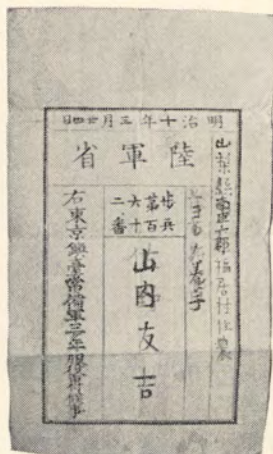 明治十年三月廿四日
陸軍省
山梨縣南巨摩郡福居村住農
歩兵
第百
六十
二番
山内友吉
右東京鎮臺常備軍三年服役可得候事